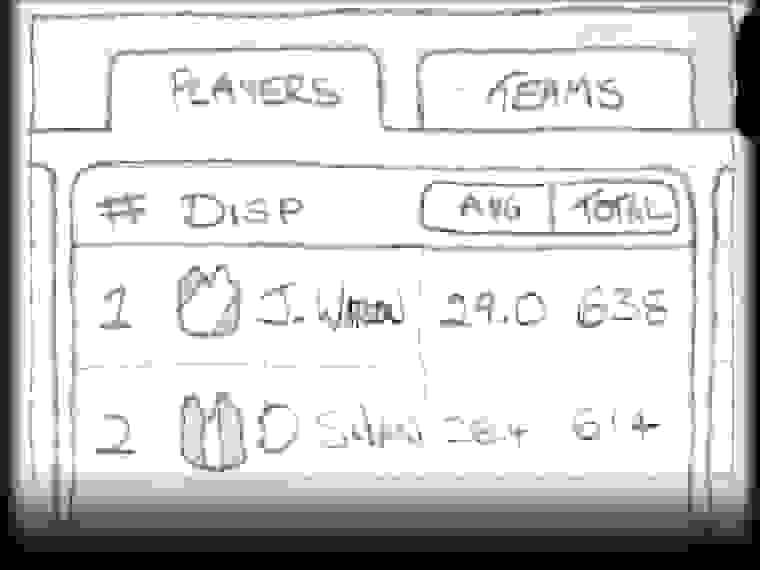 PLAYERS TEAMS
# DISP AVG TOTAL
1 J. 29.0 638
2 D 28.4 614